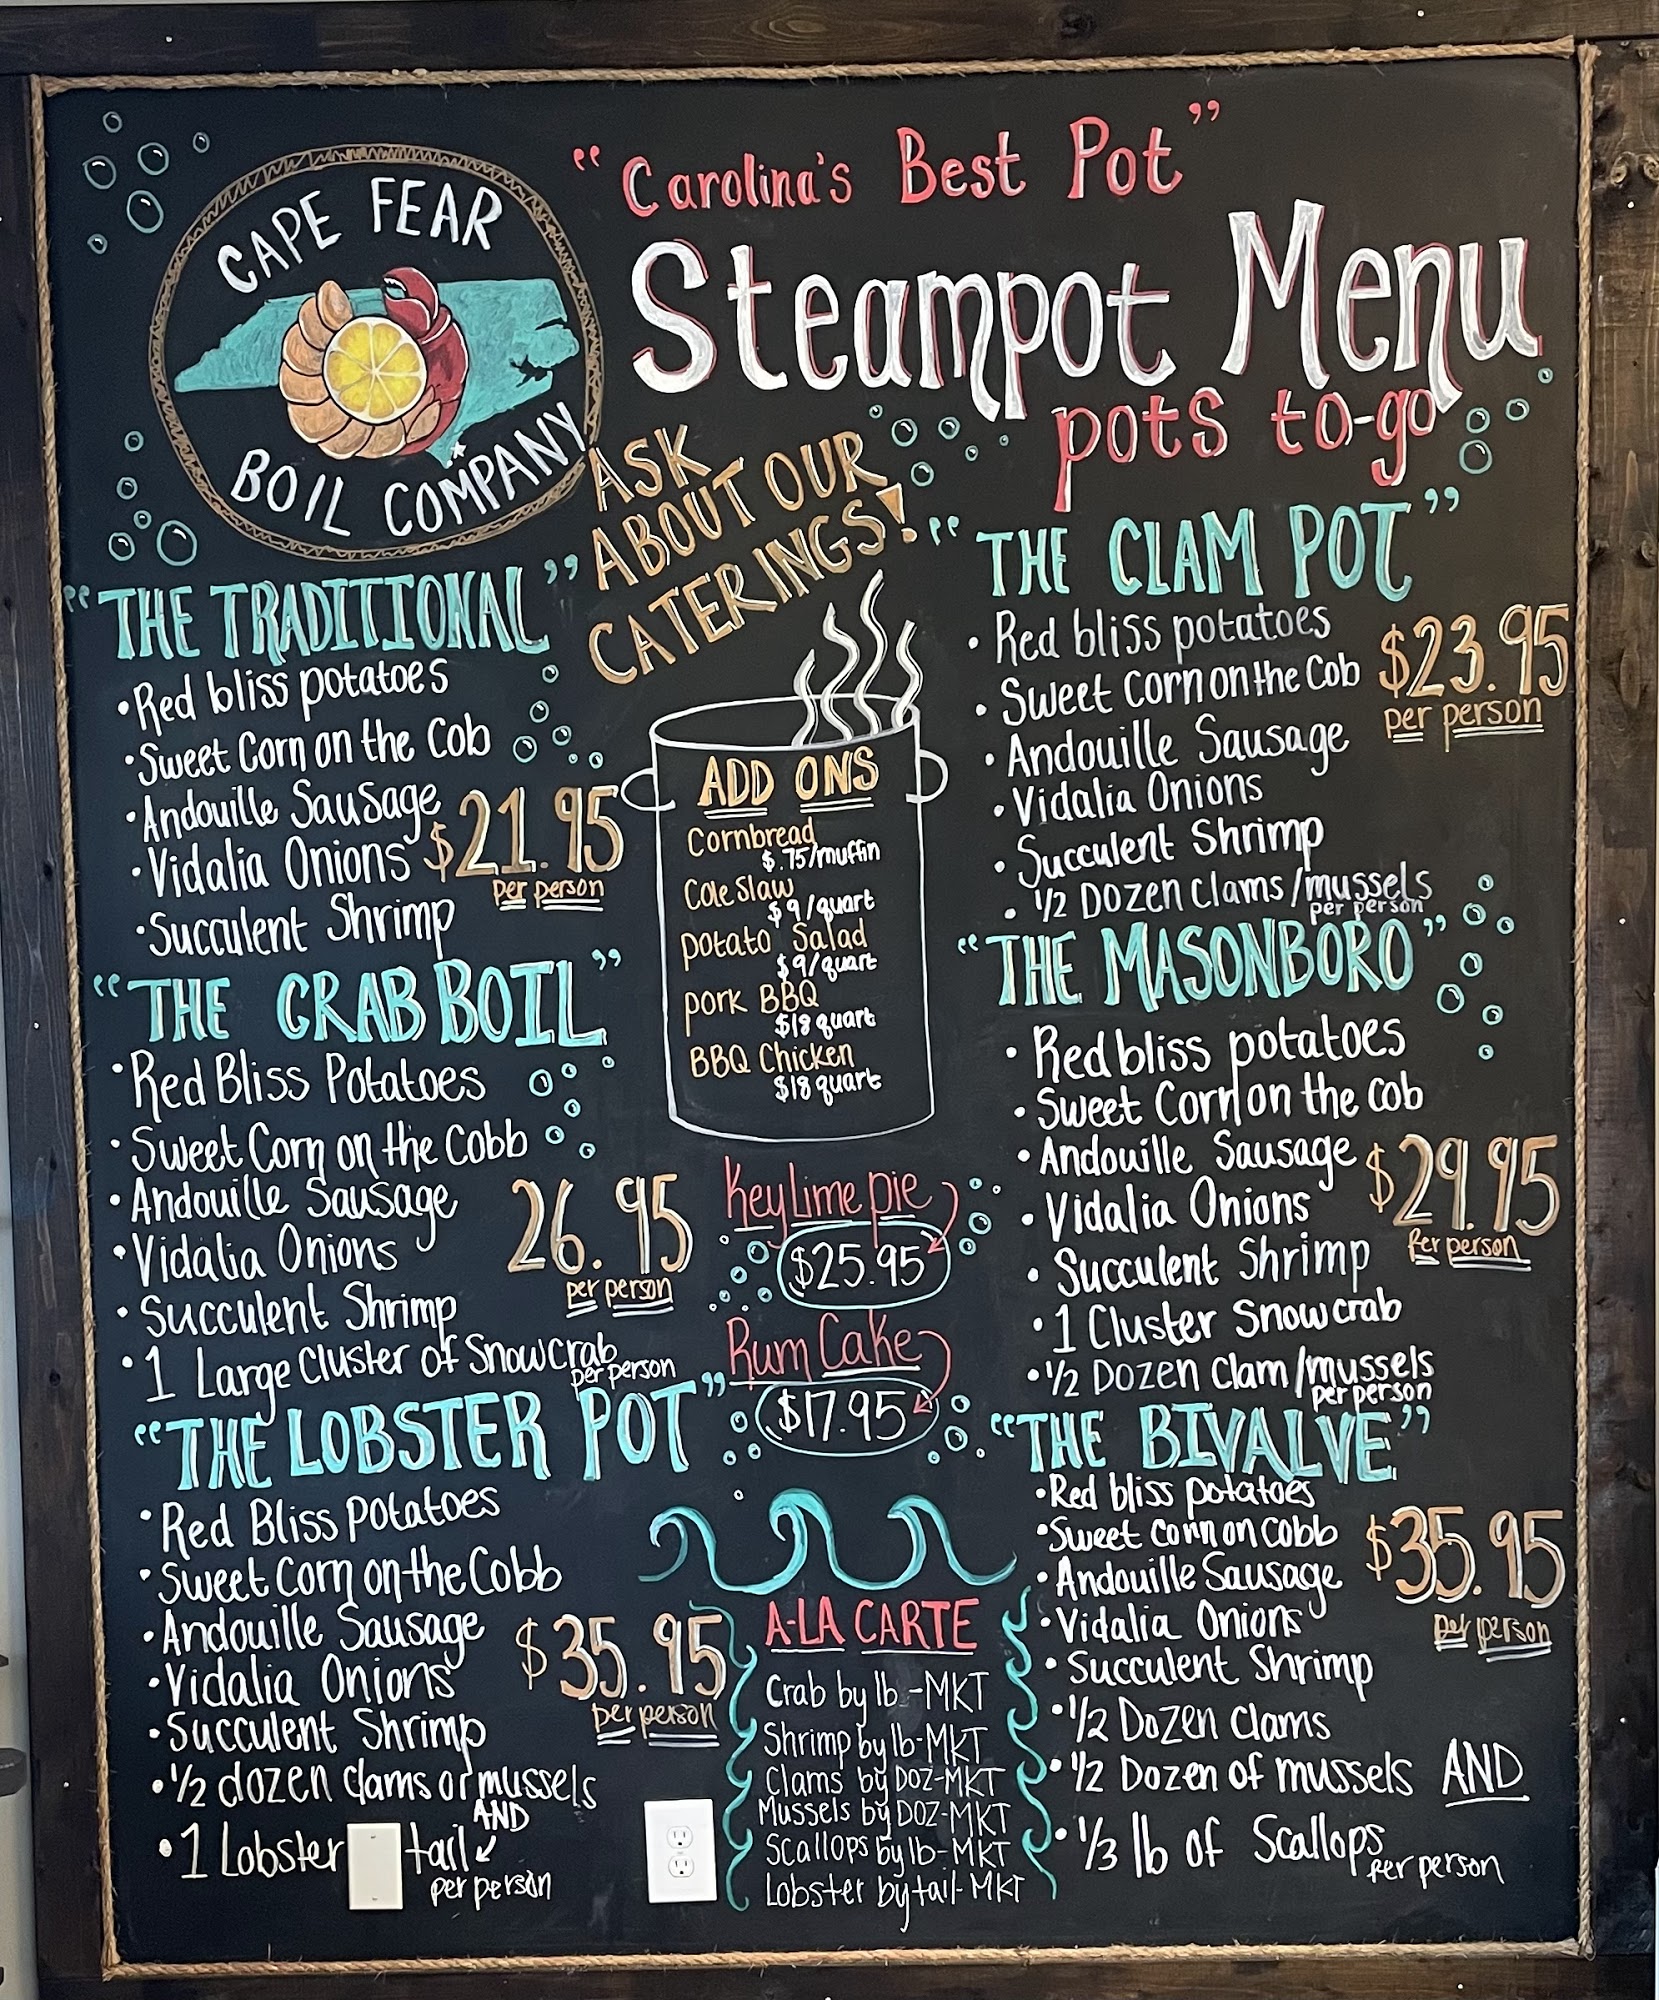 CAPE FEAR
BOIL COMPANY
"Carolina's Best Pot"
Steampot Menu
pots to-go
ASK
ABOUT OUR
CATERINGS!
"THE TRADITIONAL"
•Red bliss potatoes
•Sweet Corn on the Cob
•Andouille Sausage
•Vidalia Onions
•Succulent Shrimp
$21.95
per person
"THE CRAB BOIL"
•Red Bliss Potatoes
•Sweet Corn on the Cobb
•Andouille Sausage
•Vidalia Onions
•Succulent Shrimp
•1 Large Cluster of Snowcrab
per person
26.95
per person
"THE LOBSTER POT"
•Red Bliss Potatoes
•Sweet Corn on the Cobb
•Andouille Sausage
•Vidalia Onions
•Succulent Shrimp
•1/2 dozen clams or mussels
AND
•1 Lobster tail
per person
$35.95
per person
ADD ONS
Cornbread
$.75/muffin
Cole Slaw
$9/quart
Potato Salad
$9/quart
Pork BBQ
$18 quart
BBQ Chicken
$18 quart
Key Lime pie
$25.95
Rum Cake
$17.95
A-LA CARTE
Crab by lb-MKT
Shrimp by lb-MKT
Clams by DOZ-MKT
Mussels by DOZ-MKT
Scallops by lb-MKT
Lobster by tail-MKT
"THE CLAM POT"
•Red bliss potatoes
•Sweet Corn on the Cob
•Andouille Sausage
•Vidalia Onions
•Succulent Shrimp
•1/2 Dozen Clams/mussels
per person
$23.95
per person
"THE MASONBORO"
•Red bliss potatoes
•Sweet Corn on the cob
•Andouille Sausage
•Vidalia Onions
•Succulent Shrimp
•1 Cluster Snowcrab
•1/2 Dozen Clam/mussels
per person
$29.95
Per person
"THE BIVALVE"
•Red bliss potatoes
•Sweet Corn on Cobb
•Andouille Sausage
•Vidalia Onions
•Succulent Shrimp
•1/2 Dozen Clams
•1/2 Dozen of mussels AND
•1/3 lb of Scallops
Per person
$35.95
per person